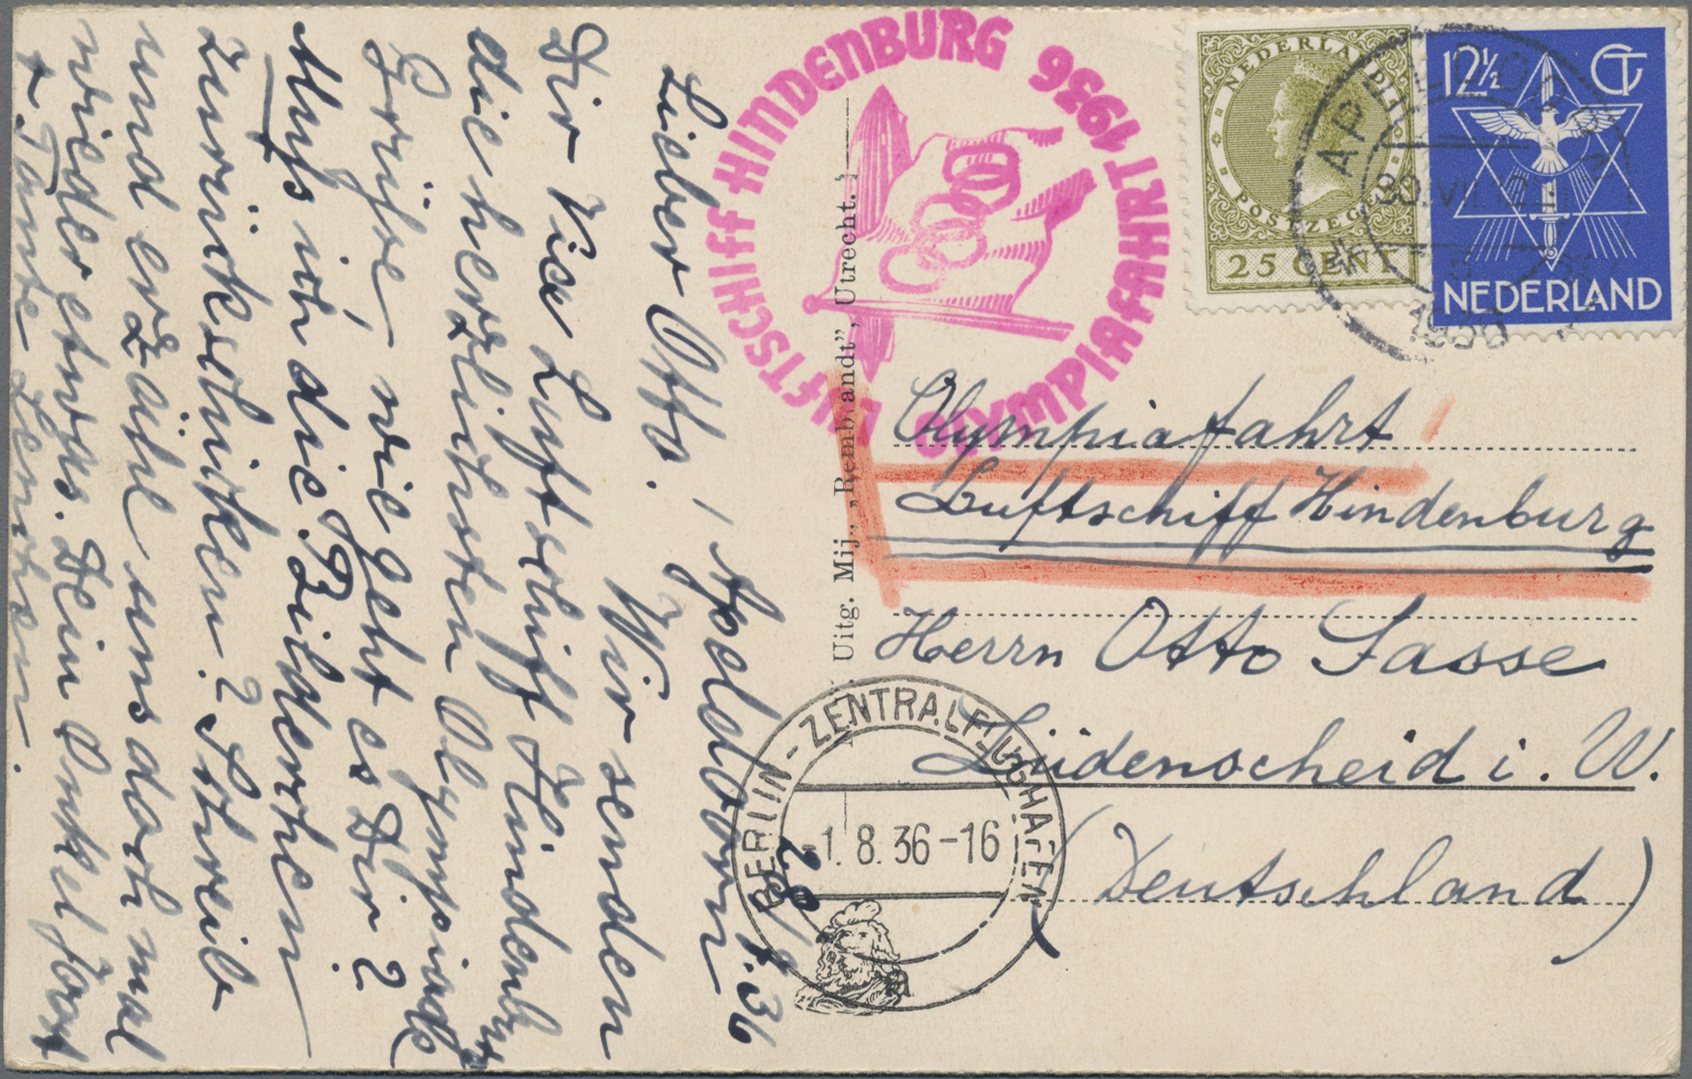 LUFTSCHIFF HINDENBURG 1936
OLYMPIAFAHRT
NEDERLAND
POSTZEGEL
25 CENT
12½
NEDERLAND
AP
30.VII.12
1936
Olympiafahrt
Luftschiff Hindenburg
Herrn Otto Sasse
Lüdenscheid i. W.
(Deutschland)
BERLIN - ZENTRALFLUGHAFEN
-1.8.36-16
a
Uitg. Mij. „Rembrandt”, Utrecht.
28/7.36
Lieber Otto.
Wir senden
Dir Luftschiff Hindenburg
die herzlichsten Olympiade
Grüsse, wie geht es Dir?
Muss ich die Bilderchen
zurückschicken? Schreib
und erzähle uns doch mal
wieder etwas. Dein Onkel
+ Tante Lenchen.